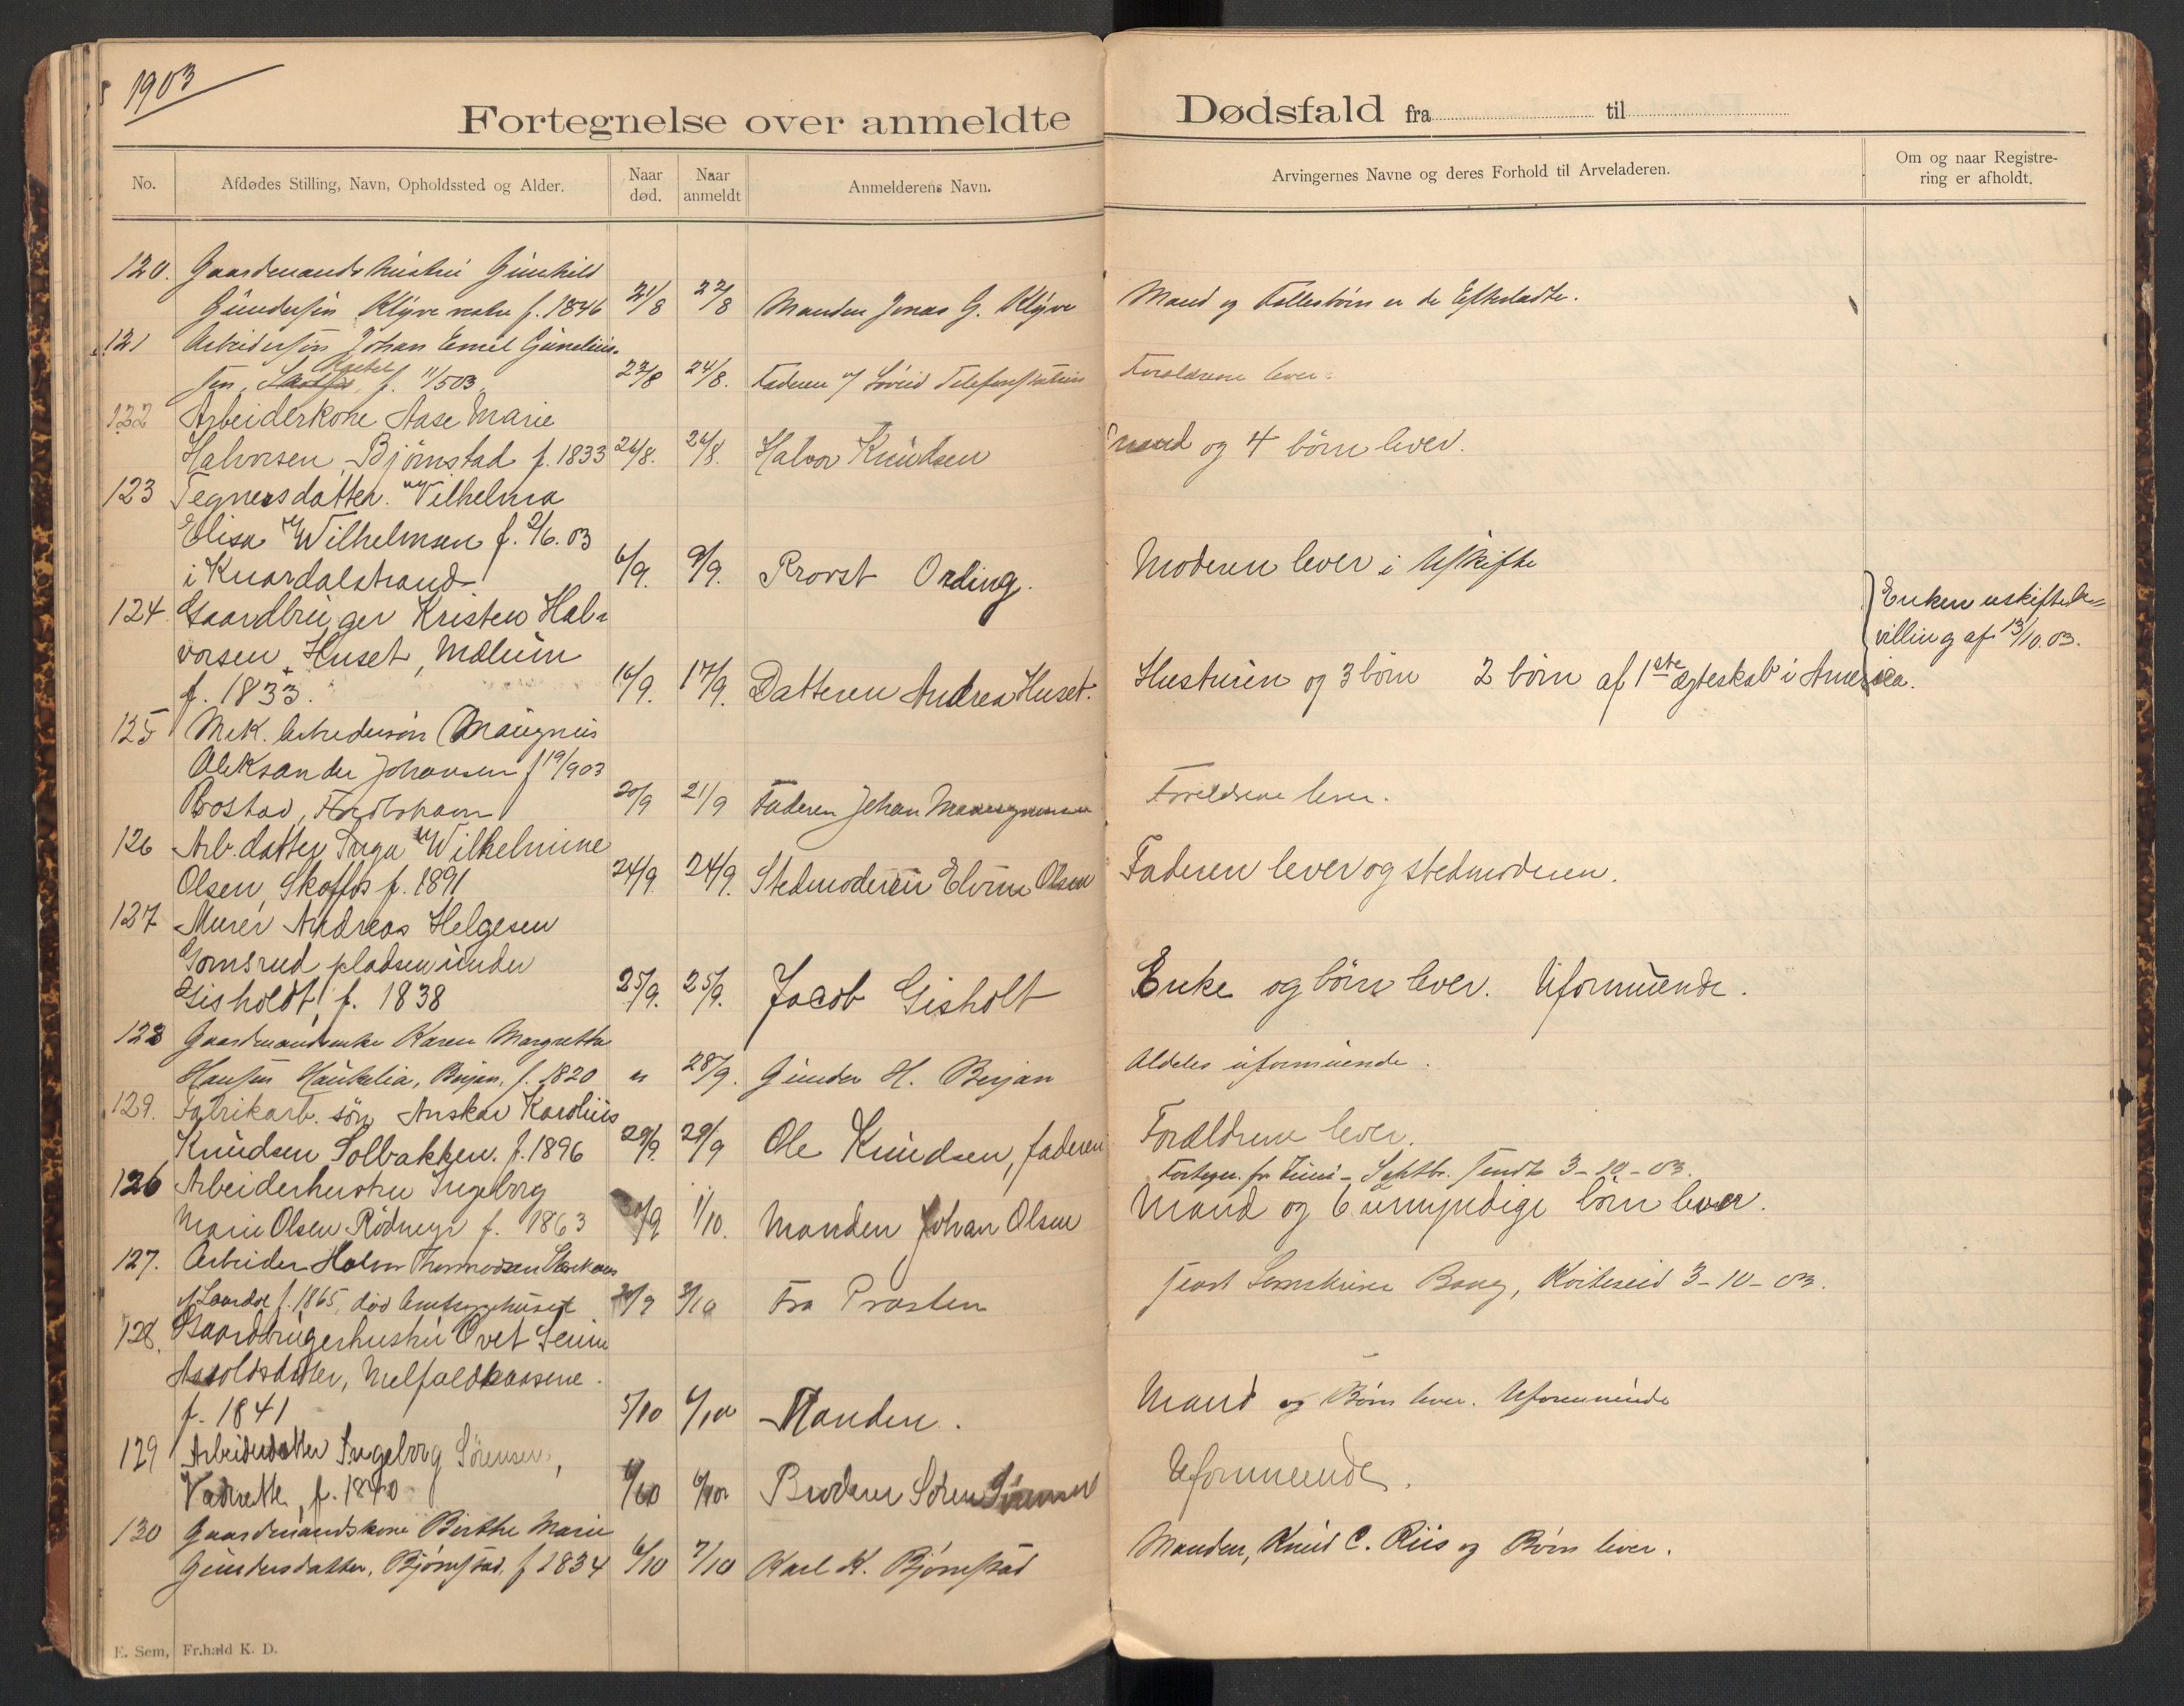 1903
Fortegnelse over anmeldte Dødsfald fra til
No.
Afdødes Stilling, Navn, Opholdssted og Alder.
Naar død.
Naar anmeldt
Anmelderens Navn.
Arvingernes Navne og deres Forhold til Arveladeren.
Om og naar Registre-
ring er afholdt.
120. Gaardmandshustru Gunhild
Gundersen Klyve f. 1846 21/8 22/8 Manden Jonas G. Klyve Mand og Fællesbörn er de Efterladte.
121 Arbeidersön Johan Emil
sen, f. 11/503 22/8 24/8. Faderen Telefonstation Forældrene lever.
122 Arbeiderkone Aase Marie
Halvorsen, Björnstad f. 1833 26/8. 26/8. Halvor Knudsen mand og 4 börn lever.
123 Tegnersdatter Vilhelma
Elisa Wilhelmsen f. 2/6.03
i Knardalstrand 6/9. 9/9. Provst Ording. Moderen lever i Uskifte
124. Gaardbruger Kristen Hal-
vorsen Huset, Mælum
f. 1833. 16/9. 17/9. Datteren Andrea Huset. Hustruen og 3 börn 2 börn af 1ste ægteskab i Amerika.
Enken uskiftebe-
villing af 13/10.03.
125 Mek. Arbedersön Maugnus
Aleksander Johansen f 19/903
20/9 21/9 Faderen Johan Forældrene lever.
126 Arb. datter Inga Wilhelmine
Olsen, Skotfos f. 1891 24/9. 24/9. Stedmoderen Olsen Faderen lever og stedmoderen.
127 Murer Andreas Helgesen
Gomsrud pladsen under
Gisholdt, f. 1838 25/9. 25/9. Jacob Gisholt Enke og börn lever. Uformuende.
128 Gaardmandsenke Karen Margrethe
Hansen Haukelia, f. 1820 28/9. Gunder H. Berjan Aldeles uformuende.
129. Fabrikarb. sön Anskar Karolius
Knudsen Solbakken. f. 1896 29/9. 29/9 Ole Knudsen, faderen Forældrene lever.
Fortegn. for Juni - Septbr. sendt 3-10-03.
126 Arbeiderhustru Ingeborg
Marie Olsen Rödmyr f. 1863 30/9 1/10. Manden Johan Olsen Mand og 6 umyndige börn lever.
127. Arbeider Halvor
f. 1865, död Amtssygehuset 3/10 Fra Præsten Sendt Sorenskriver Bang, Kviteseid 3-10-03.
128. Gaardbrugerhustru
Melfaldkaasene.
f. 1841 5/10 6/10 Manden. Mand og Börn lever. Uformuende
129 Arbeiderdatter Ingeborg Sörensen,
f. 1840 6/10 6/10 Broderen Sören Sörensen Uformuende.
130 Gaardmandskone Birthe Marie
Gundersdatter, Björnstad. f 1834 6/10 7/10 Karl K. Björnstad Manden, Knud C. Riis og Börn lever.
E. Sem, Fr.hald K. D.